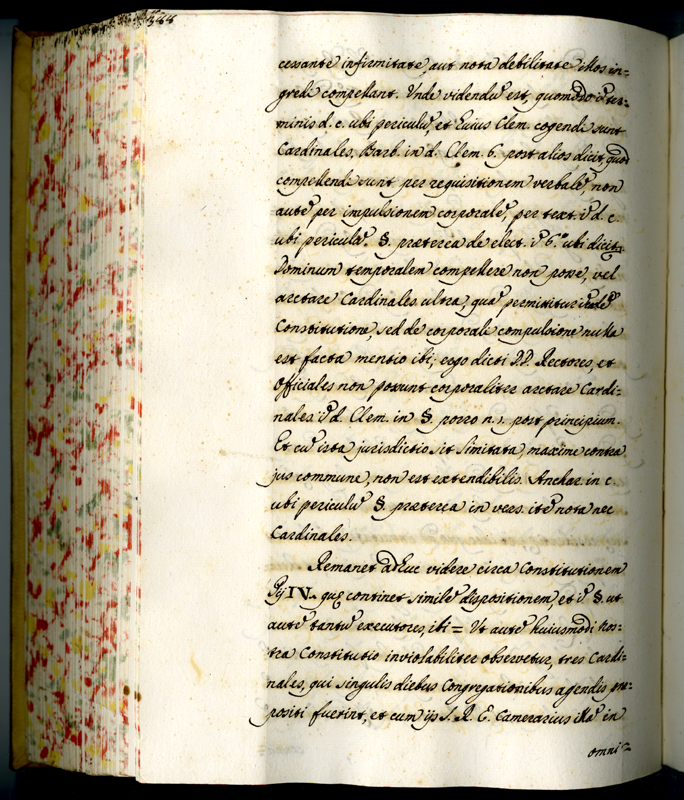 cessante infirmitate, aut nota debilitate illos in=
gredi compellant. Unde videndũ est, quomodo ĩ ter=
minis d. c. ubi periculũ, et huius Clem. cogendi sunt
Cardinales, Barb. in d. Clem. 6. post alios dicit, quod
compellendi sunt per requisitionem verbalẽ, non
autẽ per impulsionem corporalẽ, per text. ĩ d. c.
ubi periculũ. §. præterea de elect. ĩ 6.º ubi dicit
Dominum temporalem compellere non posse, vel
arctare Cardinales ultra, quã permittitur
Constitutione, sed de corporale compulsione nulla
est facta mentio ibi; ergo dicti DD. Rectores, et
Officiales non possunt corporaliter arctare Cardi=
nales ĩ d. Clem. in §. porro n. 1. post principium.
Et cũ ista jurisdictio sit limitata, maxime contra
jus commune, non est extendibilis. Anchar. in c.
ubi periculũ §. præterea in vers. itẽ nota nec
Cardinales.
Remanet adhuc videre circa Constitutionem
Pij IV. quę continet similẽ dispositionem, et ĩ §. ut
autẽ tantũ executores, ibi = Ut autẽ huiusmodi nos=
tra Constitutio inviolabiliter observetur, tres Cardi=
nales, qui singulis diebus Congregationibus agendis præ=
positi fuerint, et cum ijs S. R. E. Camerarius illã in
omni=